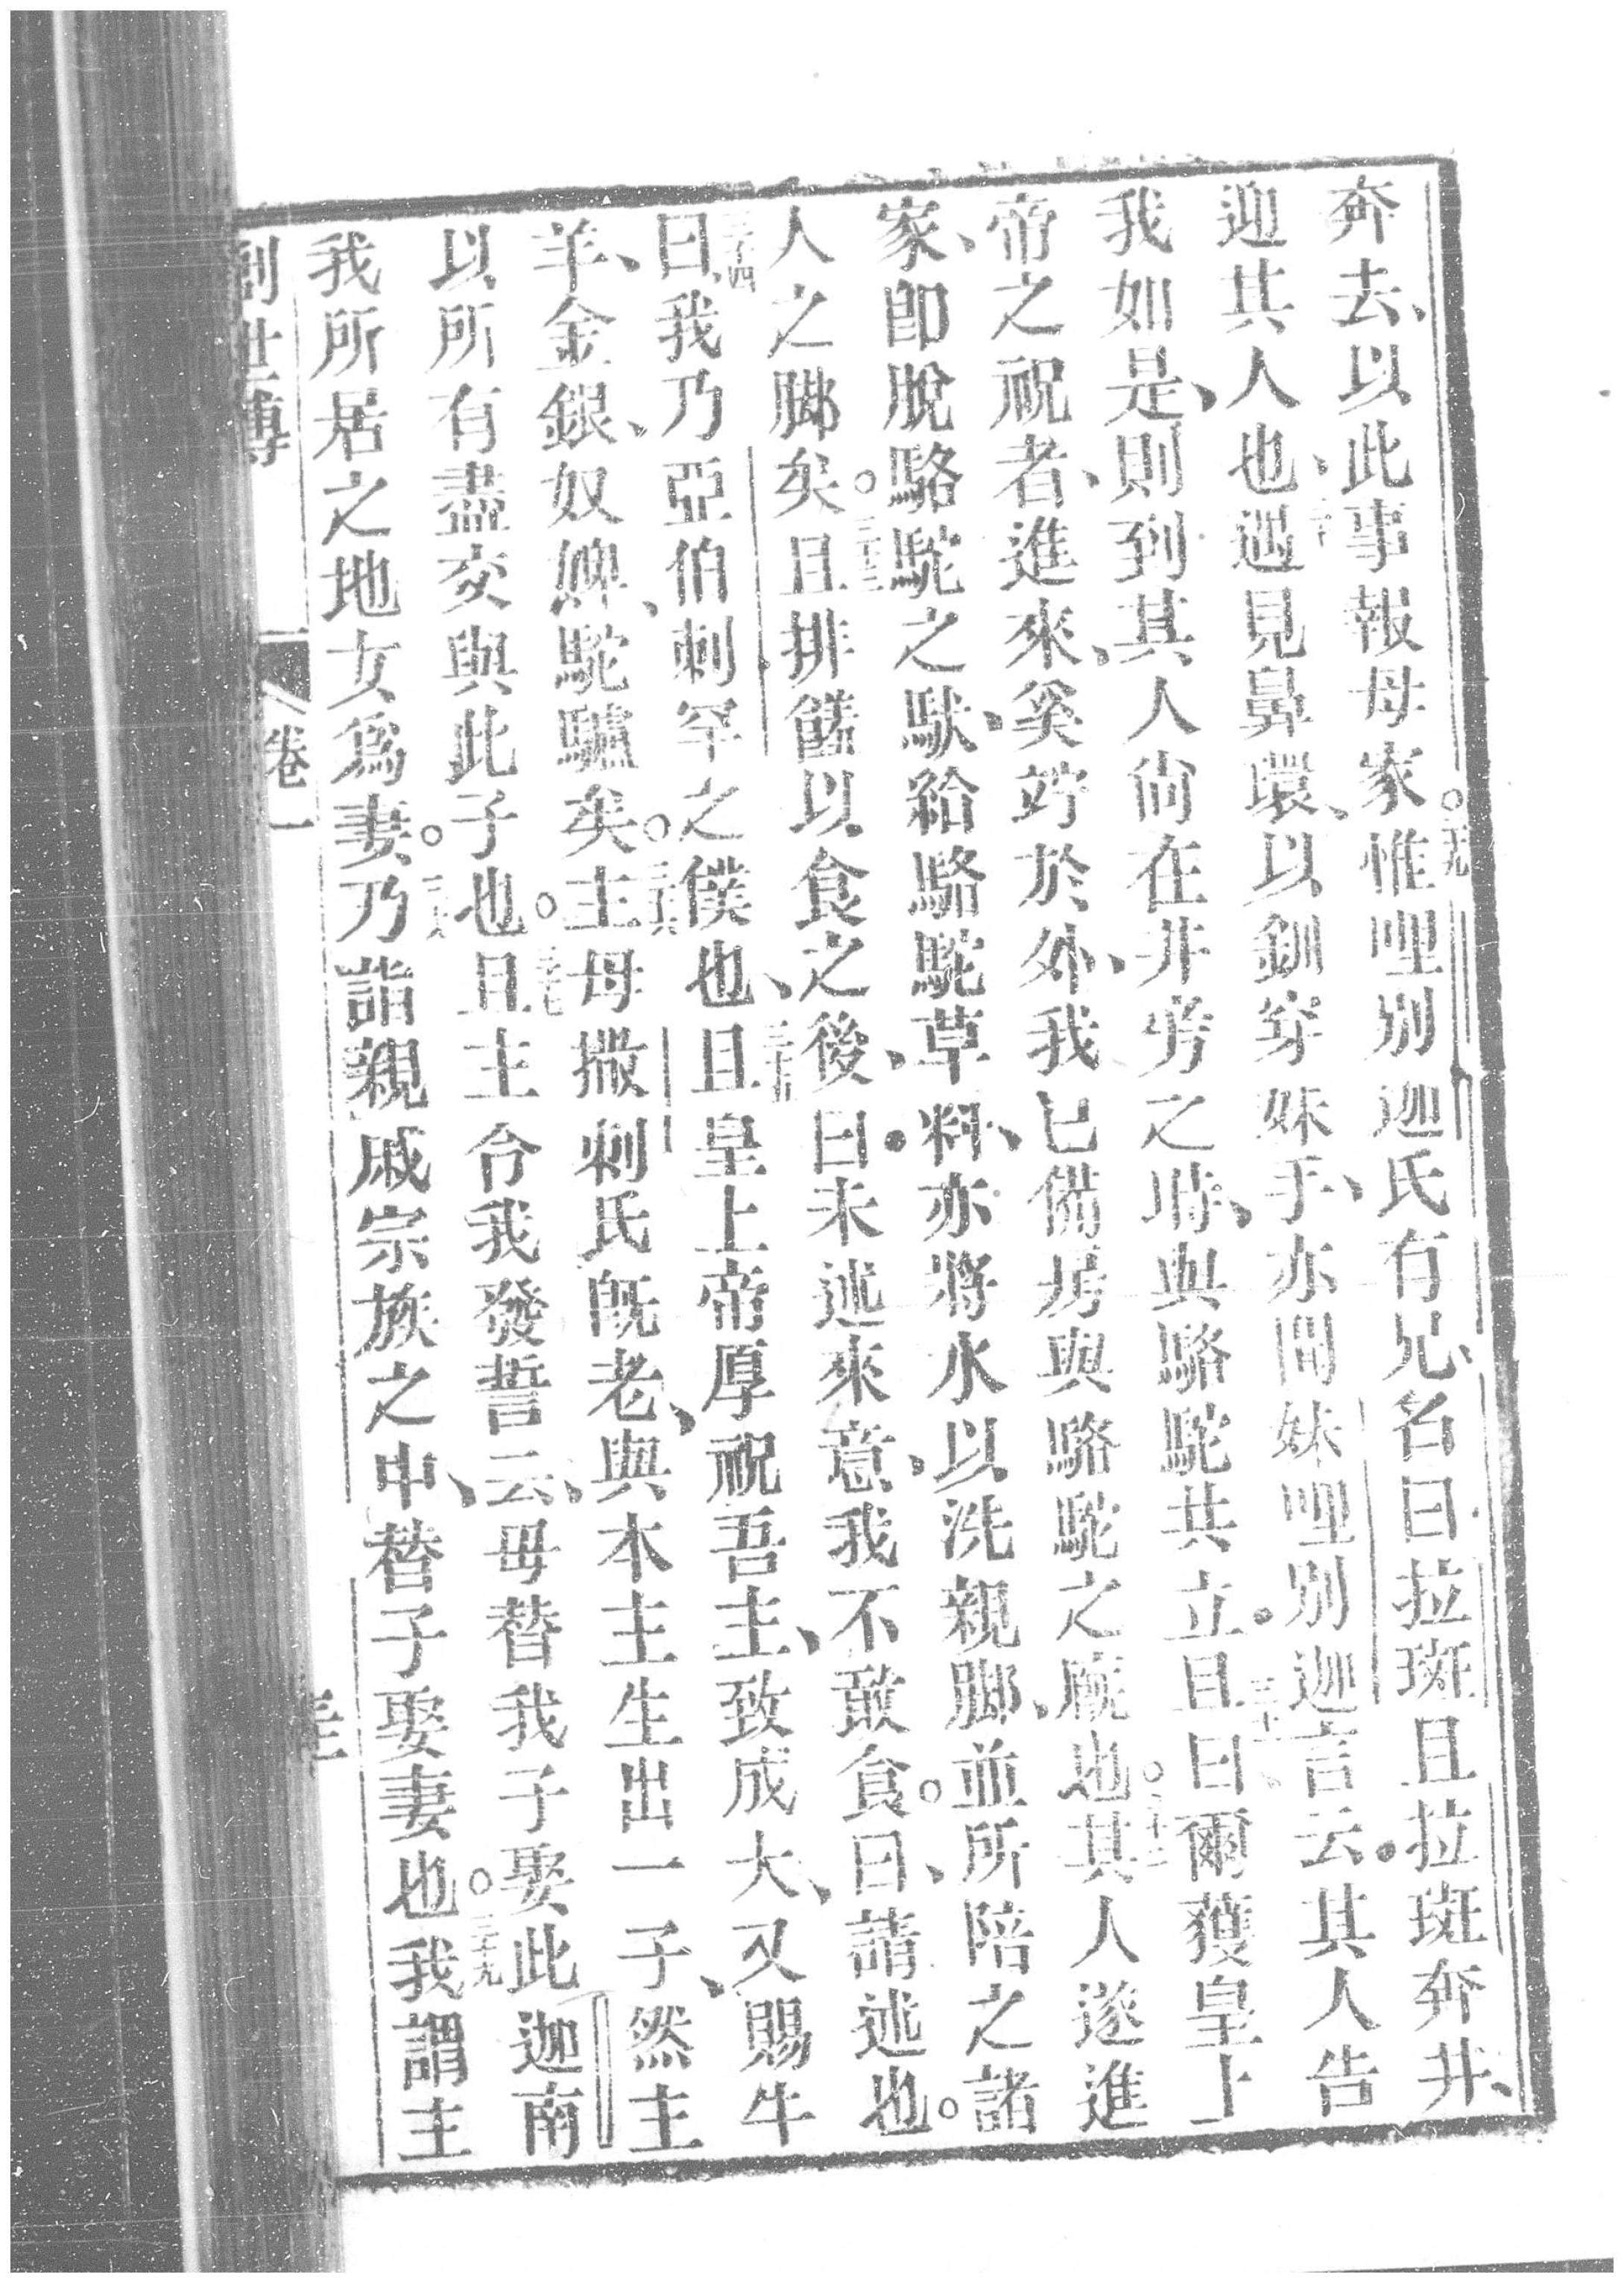 奔去、以此事報母家。二九惟哩別迦氏有兄、名曰拉班且拉斑奔井、
迎其人也、三十遇見鼻環、以釧穿妹手、亦聞妹哩別迦言云、其人告
我如是、則到其人尚在井旁之時、與駱駝共立。三一且曰爾獲皇上
帝之祝者、進來、奚竚於外、我已備房與駱駝之廐也。三十二其人遂進
家、即脫駱駝之馱、給駱駝草料、亦將水以洗親脚、並所陪之諸
人之脚矣。三十三且排饈以食之、後曰、未述來意、我不敢食。曰、請述也。
三十四曰、我乃亞伯剌罕之僕也、三十五且皇上帝厚祝吾主、致成大、又賜牛
羊、金銀、奴婢、駝驢矣。三十六主母撒剌氏既老、與本主生出一子、然主
以所有盡交與此子也。三十七且主令我發誓云、毋替我子娶此迦南
我所居之地女為妻。三十八乃詣親戚宗族之中、替子娶妻也。三十九我謂主
創世傳 卷一